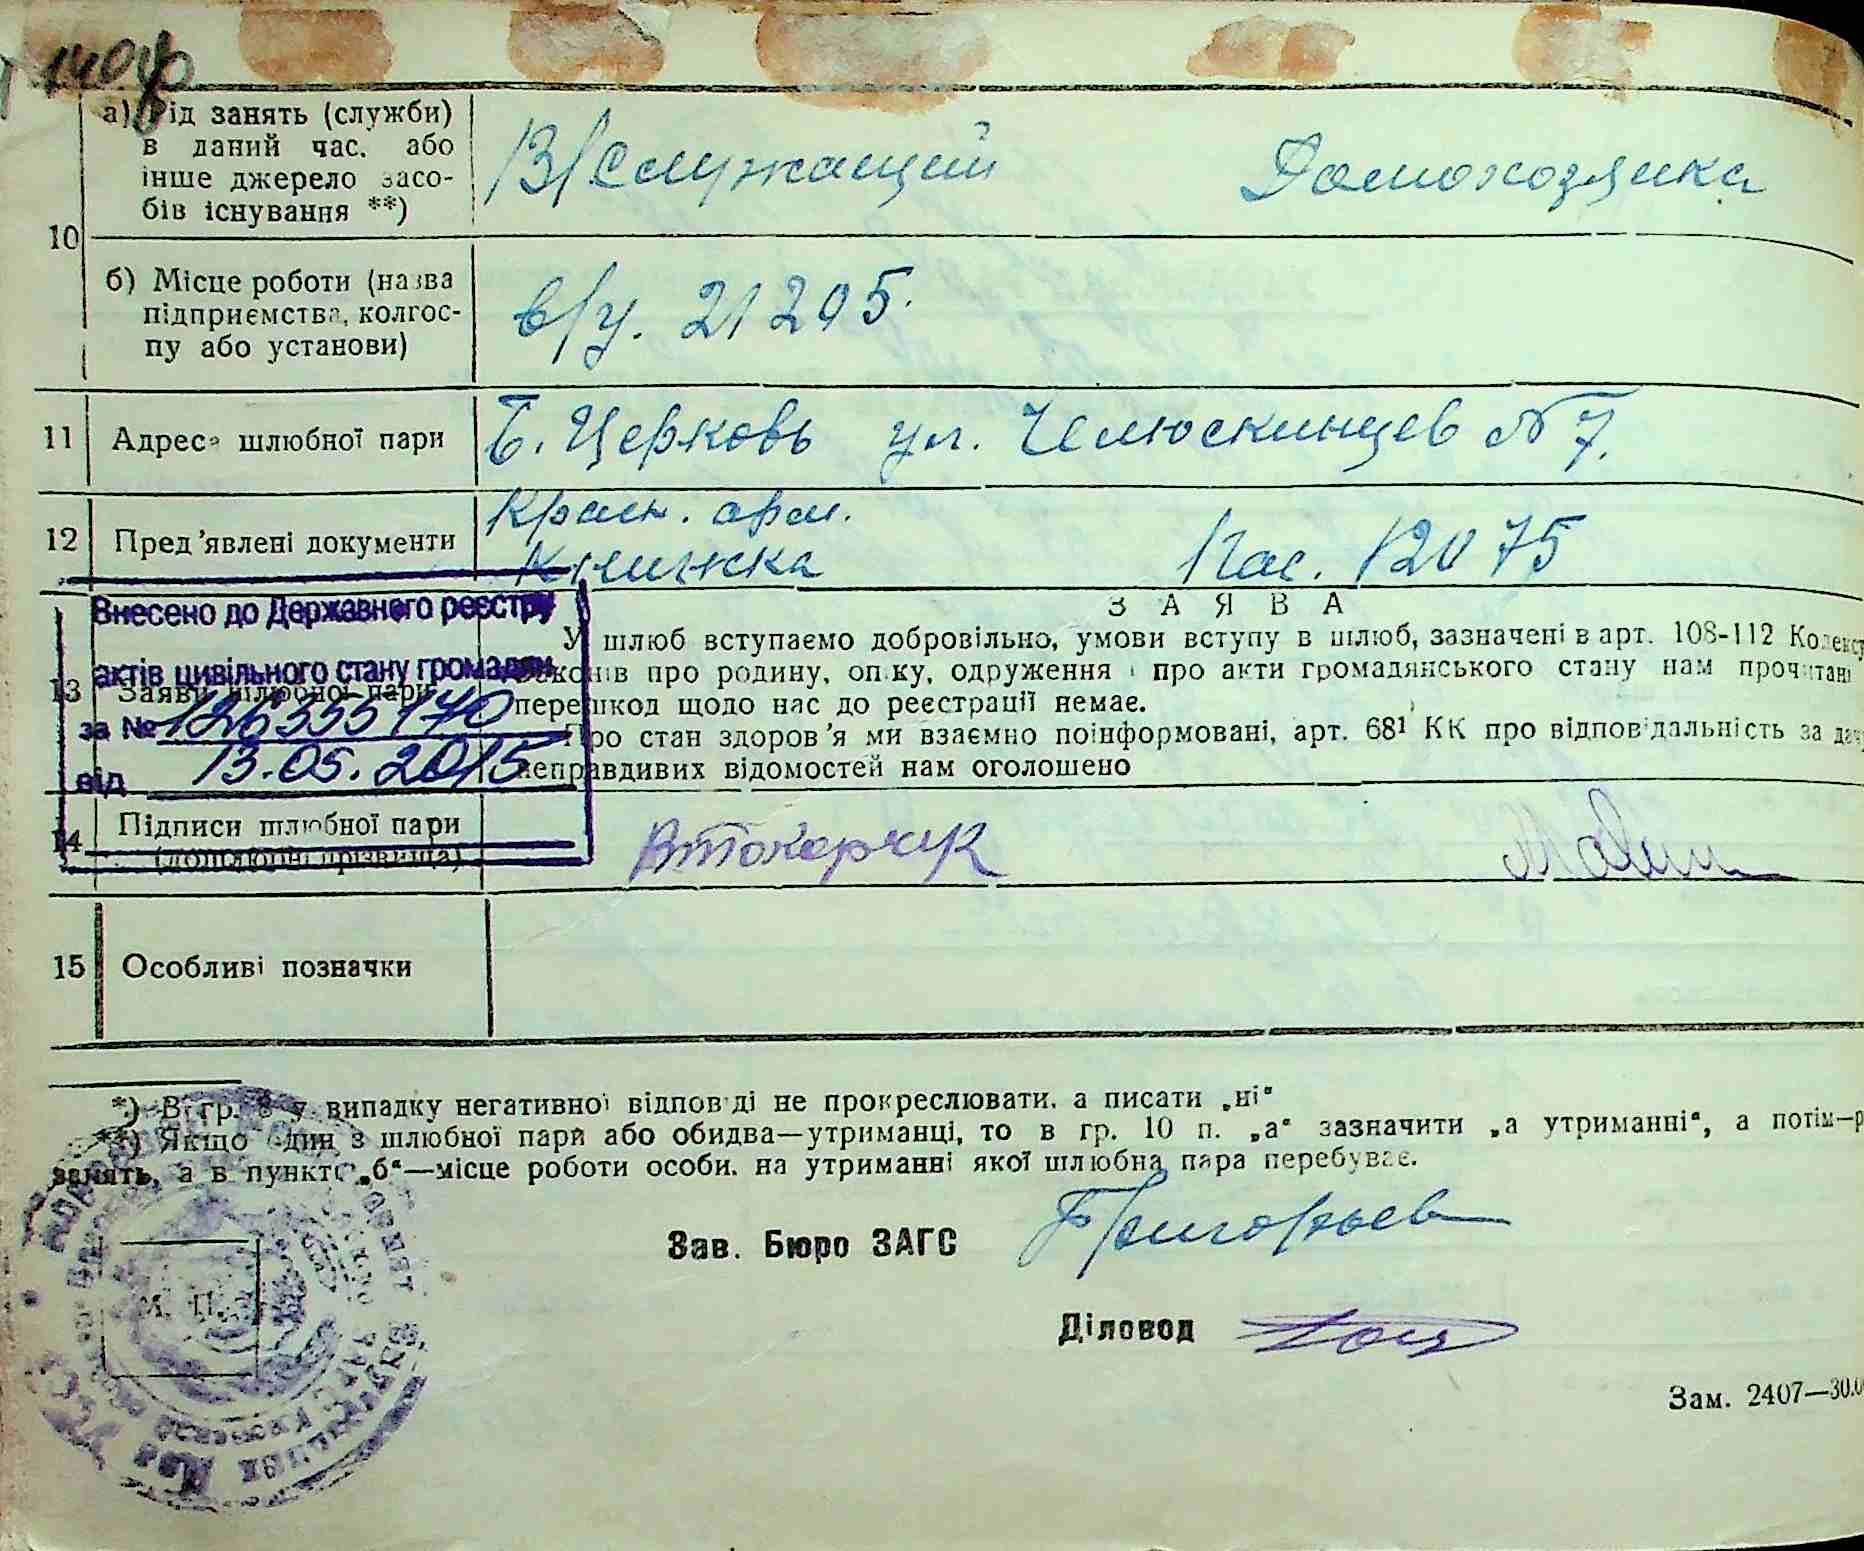 а) Рід занять (служби)
в даний час. або
інше джерело засо-
бів існування **)
В/Служащий Домохозяйка
10
б) Місце роботи (назва
підприємства, колгос-
пу або установи)
в/у. 21205.
11 Адреса шлюбної пари Б. Церковь ул. Челюскинцев № 7.
12 Пред'явлені документи Красн. арм.
книжка Пас. 12075
Внесено до Державного реєстру
актів цивільного стану громадян
за № 126355170
від 13.05.2015
13 Заяви шлюбної пари
З А Я В А
У шлюб вступаємо добровільно, умови вступу в шлюб, зазначені в арт. 108-112 Кодексу
законів про родину, опіку, одруження і про акти громадянського стану нам прочитані
перешкод щодо нас до реєстрації немає.
Про стан здоров'я ми взаємно поінформовані, арт. 68¹ КК про відповідальність за дачу
неправдивих відомостей нам оголошено
14 Підписи шлюбної пари
(дошлюбні прізвища)
ВТокарчук
15 Особливі позначки
*) В гр. 8 у випадку негативної відповіді не прокреслювати, а писати „ні“
**) Якщо один з шлюбної пари або обидва—утриманці, то в гр. 10 п. „а“ зазначити „а утриманні“, а потім—р
занять, а в пункто „б“—місце роботи особи, на утриманні якої шлюбна пара перебуває.
Зав. Бюро ЗАГС Григорьев
М. П.
Діловод
Зам. 2407—30.0